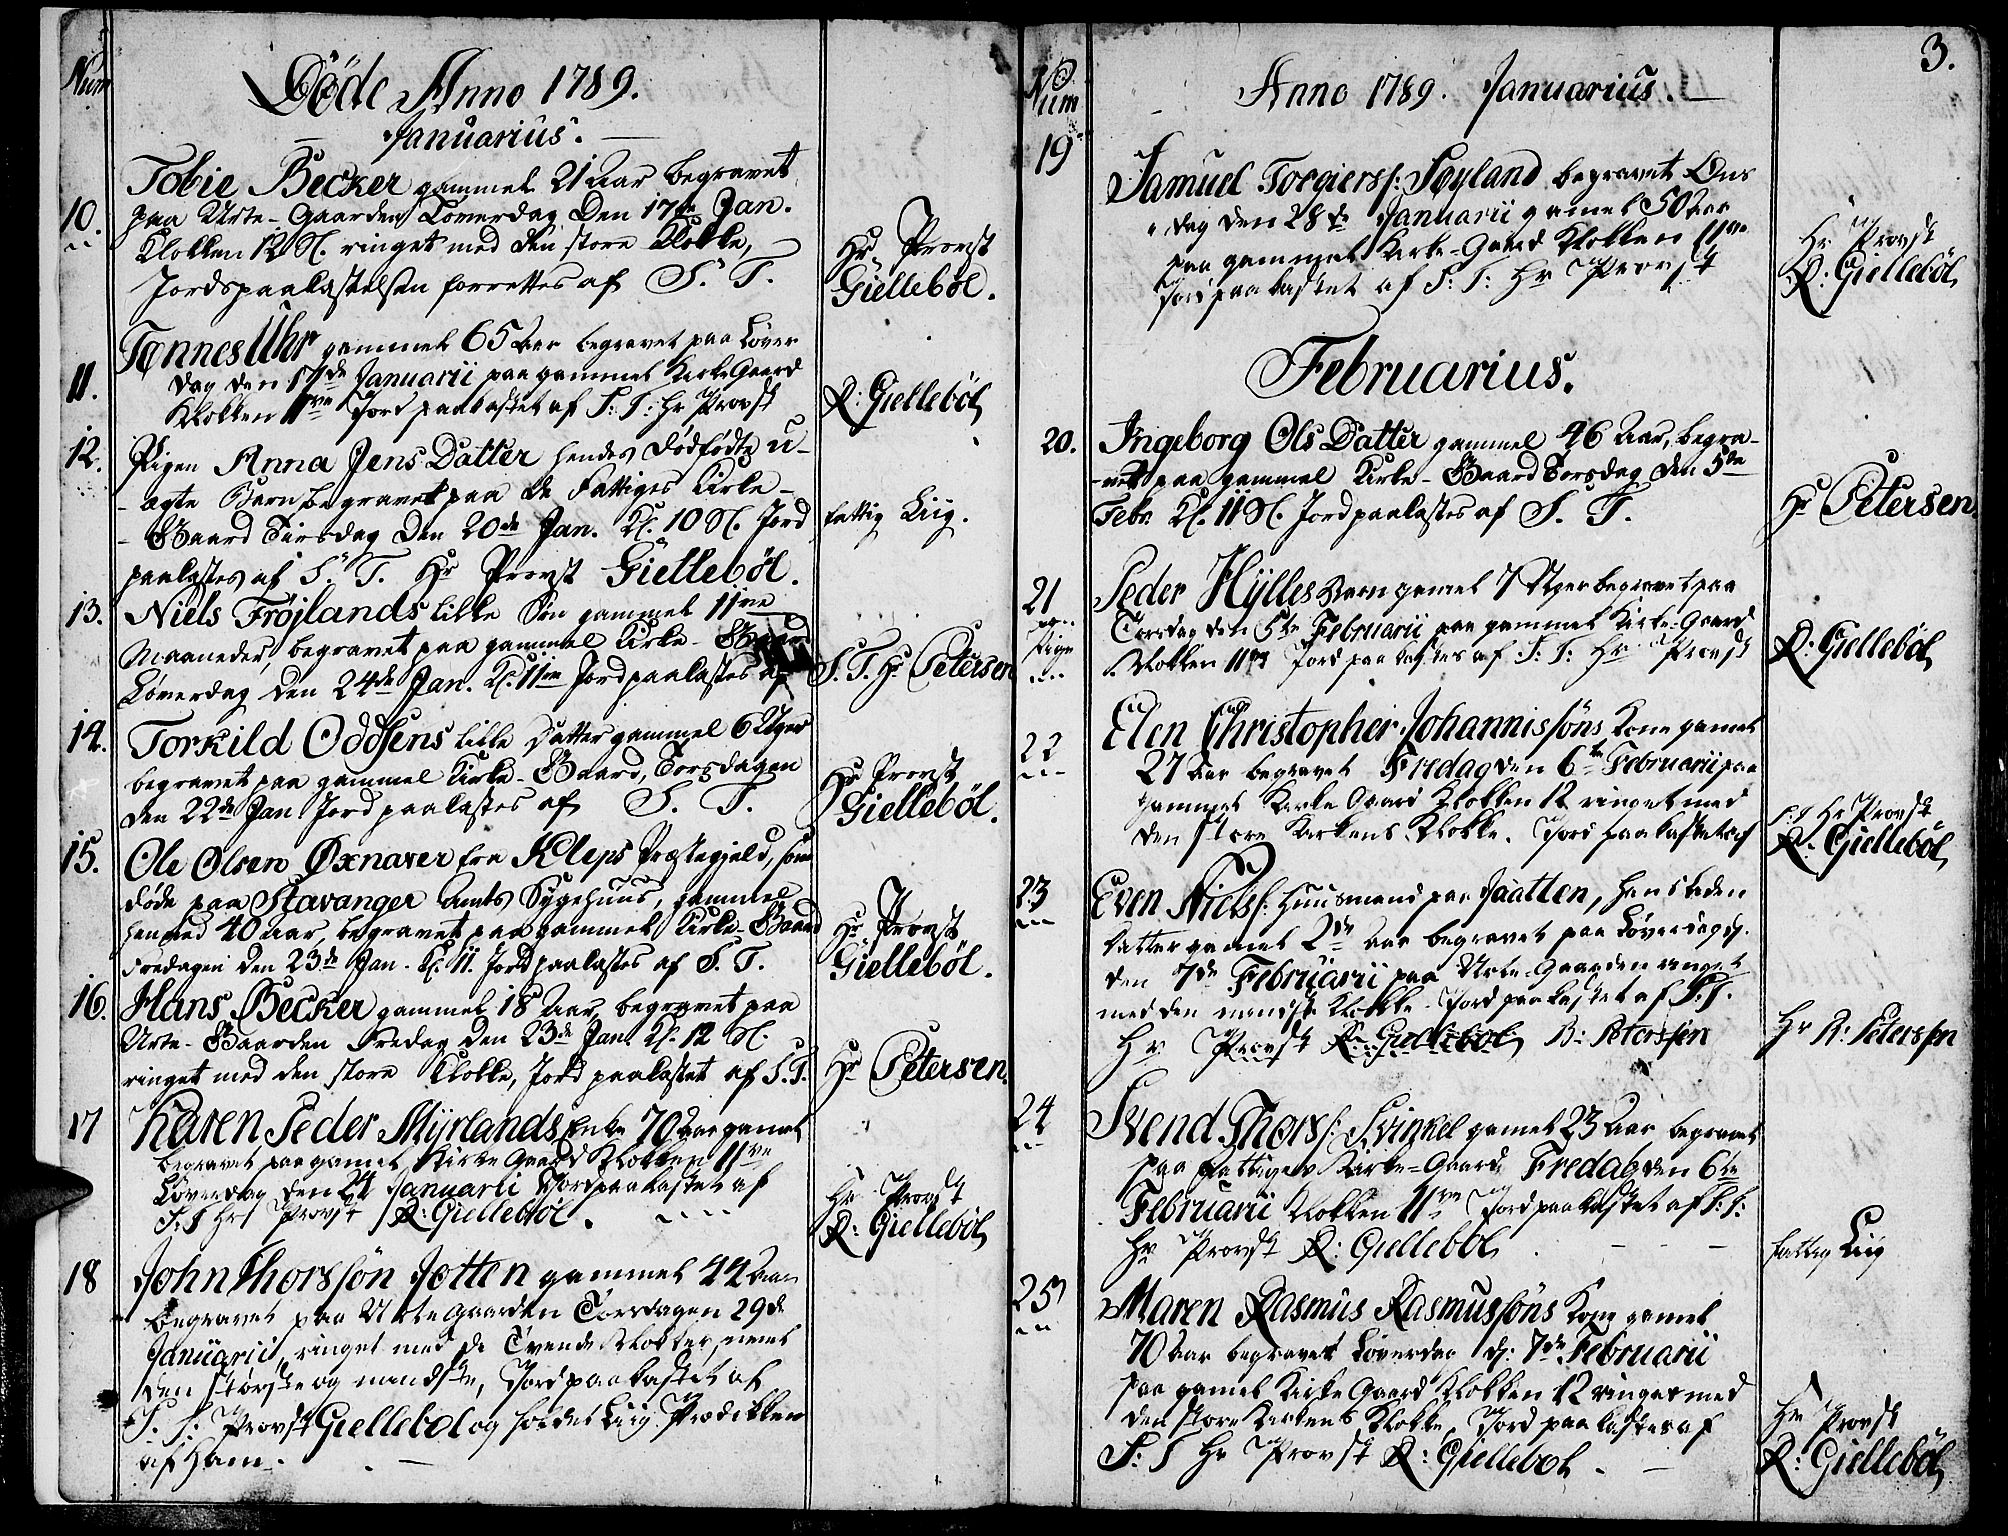 Num
Döde Anno 1789.
Januarius.
10. Tobie Becker gammel 21 Aar begravet
paa Urte-Gaarden Löverdag Den 17de Jan.
Klokken 12 Sl. ringet med den store Klokke,
Jordspaakastelsen forrettes af S. T.
Hr. Provst
Giellebøl.
11. Tønnes Uhr gammel 65 Aar begravet paa Löver
dag den 17de Januarii paa gammel Kirke Gaard
Klokken 11ve Jord paakastet af S: T: Hr Provst
R: Giellebøl
12. Pigen Anna Jens Datter hendes dödfödte u-
-ægte Barn begravet paa de Fattiges Kirke-
-Gaard Tirsdag Den 20de Jan. Kl. 10 Sl. Jord
paakastes af S. T. Hr Provst Giellebøl.
fattig Liig.
13. Niels Frøjlands lille Sön gammel 11ve
Maaneder, begravet paa gammel Kirke-Gaard
Löverdag den 24de Jan. Kl. 11ve Jord paakastes af
S. T. Hr Petersen
14. Torkild Oddsens lille Datter gammel 6 Uger
begravet paa gammel Kirke-Gaard, Torsdagen
den 22de Jan Jord paakastes af S. T.
Hr Provst
Giellebøl.
15. Ole Olsen Øxnaver fra Kleps Præstegjeld, som
döde paa Stavanger Amts Sygehuus, gammel
henved 40 Aar, begravet paa gammel Kirke-Gaard
Fredagen den 23de Jan. Kl. 11. Jord paakastes af S. T.
Hr Provst
Giellebøl.
16. Hans Becker gammel 18 Aar, begravet paa
Urte-Gaarden Fredag den 23de Jan. Kl. 12 Sl.
ringet med den store Klokke, Jord paakastet af S. T.
Hr Petersen.
17 Karen Peder Myrlands Enke 70 Aar gamel
begravet paa gamel Kirke Gaard Klokken 11ve
Löverdag den 24 Januarii Jord paakastet af
S: T Hr Provst R: Giellebøl.
Hr Provst
R: Giellebøl
18 John Thorssøn Jotten gammel 44 Aar
begravet paa Urte gaarden Torsdagen 29de
Januarii, ringet med de Tvende Klokker, nemel
den störste og mindste, Jord paakastet af
S. T: Provst Giellebøl og holdet Liig Prædikken
af Ham.
3.
Num
Anno 1789. Januarius.
19 Samuel Torgiers: Søyland begravet Ons
dag den 28de Januarii gamel 50 Aar
paa gammel Kirke-Gaard Klokken 11ve
Jord paakastet af S: T: Hr Provst
Hr Provst
R: Giellebøl
Februarius.
20. Ingeborg Ols Datter gammel 46 Aar, begra-
-vet paa gammel Kirke-Gaard Torsdag den 5te
Febr. Kl. 11 Sl. Jord paakastes af S. T.
Hr Petersen
21 Peder Hylles Barn gamel 7 Uger begravet paa
Pige
Torsdag den 5te Februarii paa gammel Kirke-Gaard
Klokken 11ve Jord paakastes af S: T: Hr Provst
R: Giellebøl
22 Elen Christopher Johannissøns Kone gamel
27 Aar begravet Fredag den 6te Februarii paa
gammel Kirke Gaard Klokken 12 ringet med
den store Kirkens Klokke. Jord paakastet af
S: T Hr Provst
R: Giellebøl
23 Even Niels: Huusmand paa Jaatten, hans
datter gamel 2de Aar begravet paa Löverdag
den 7de Februarii paa Urte-Gaarden ringet
med den mindste Klokke. Jord paakastet af S. T.
Hr Provst R: Giellebøl B: Peterssen
Hr B: Peterssen
24 Svend Thors: Svinkel gamel 23 Aar begravet
paa fattiges Kirke-Gaard Fredag den 6te
Februarii Klokken 11ve Jord paakastet af S: T:
Hr Provst R: Giellebøl
fattig Liig
25 Maren Rasmus Rasmussøns Kone gamel
70 Aar begravet Löverdag d: 7de Februarii
paa gamel Kirke Gaard Klokken 12 ringet med
den store Kirkens Klokke, Jord paakastes af
S: T Hr Provst R: Giellebøl
Hr Provst
R: Giellebøl